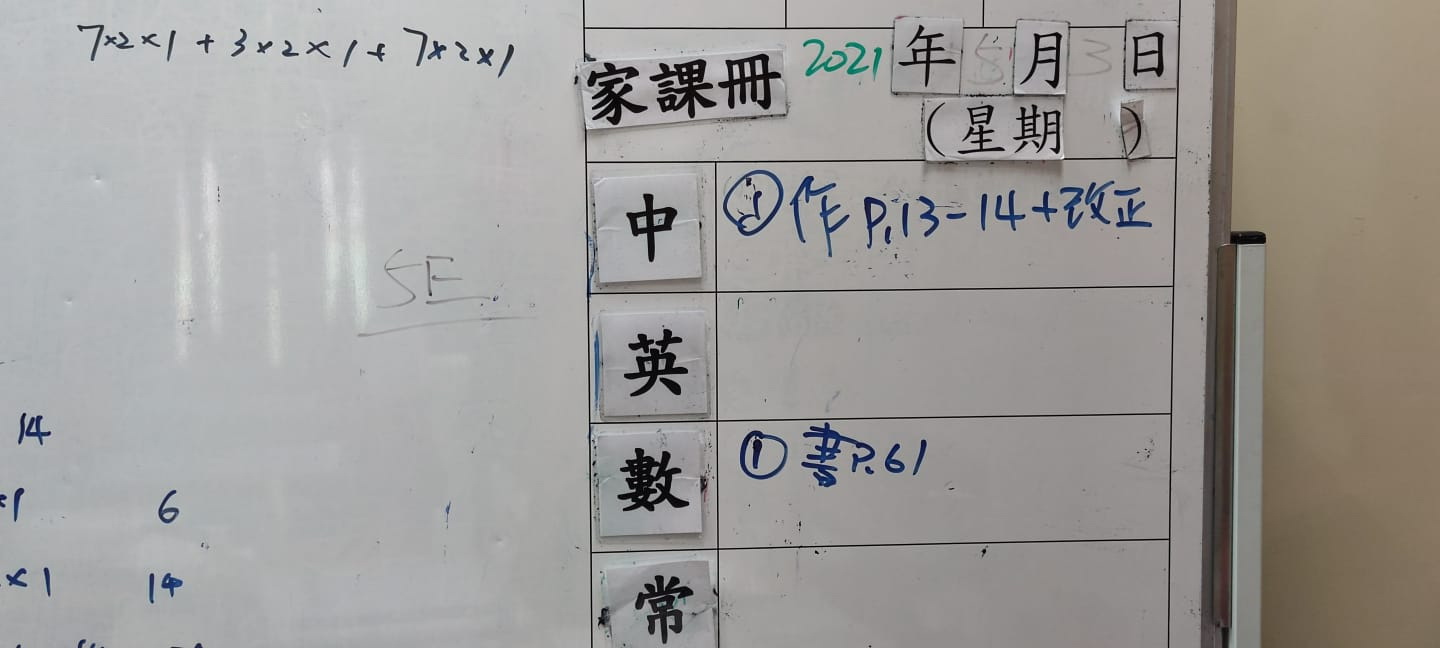 7×2×1 + 3×2×1 + 7×2×1
5E
14
×1 6
×1 14
家課冊 2021年5月3日
(星期 )
中 作 P.13-14+改正
英
數 ① 書P.61
常